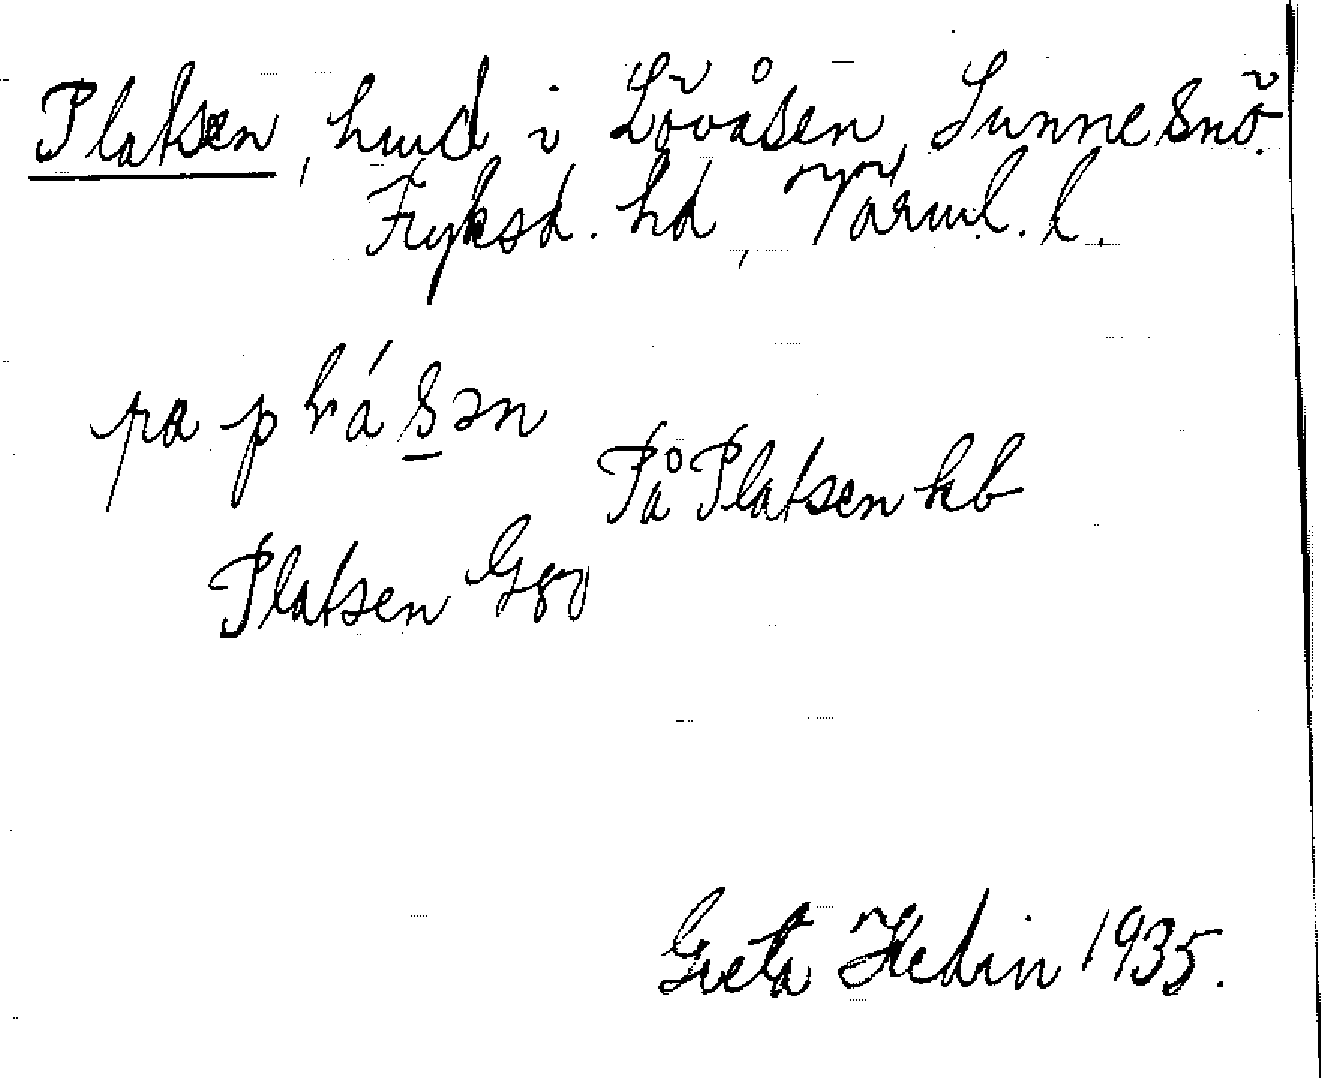 Platsen, hmd i Lövåsen, Sunne Snö.
Fryksd. hd, Värml. l.
pa plásən
På Platsen kb
Platsen Ggo
Greta Hedin 1935.